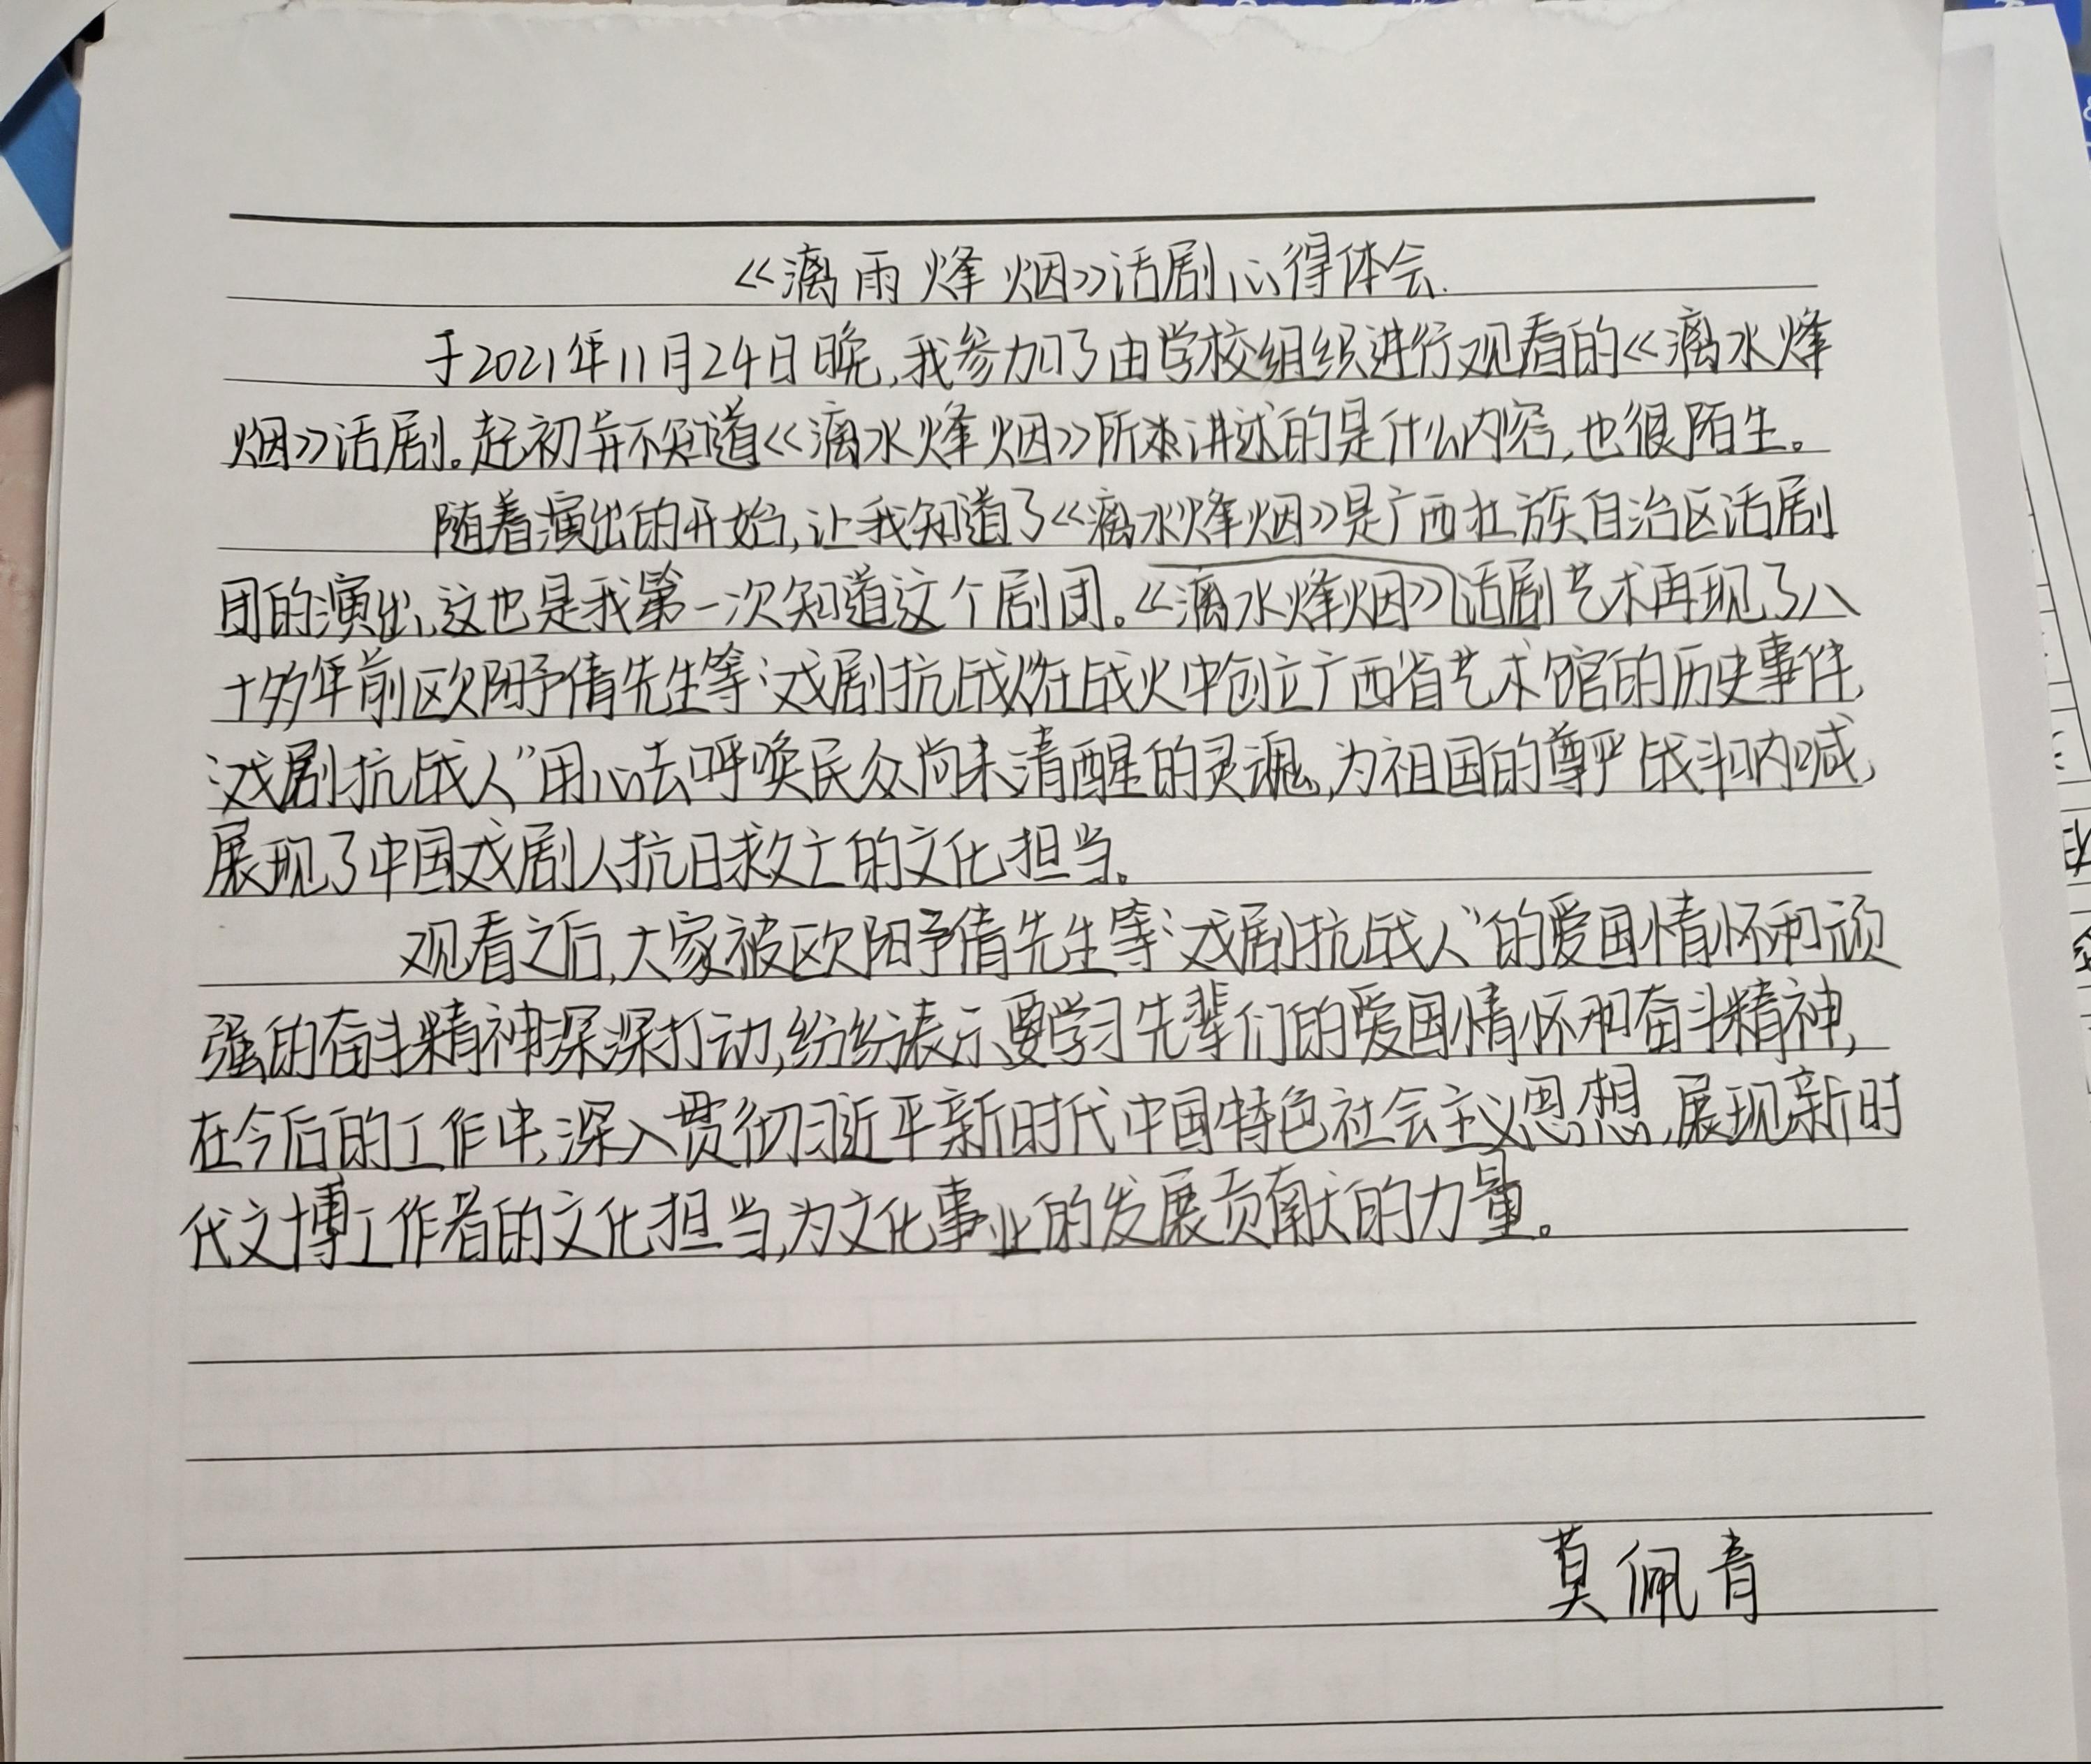 《漓雨烽烟》话剧心得体会.
于2021年11月24日晚,我参加了由学校组织进行观看的《漓水烽
烟》话剧。起初并不知道《漓水烽烟》所来讲述的是什么内容,也很陌生。
随着演出的开始,让我知道了《漓水烽烟》是广西壮族自治区话剧
团的演出,这也是我第一次知道这个剧团。《漓水烽烟》话剧艺术再现了八
十多年前欧阳予倩先生等“戏剧抗战人”在战火中创立广西省艺术馆的历史事件,
“戏剧抗战人”用心去呼唤民众尚未清醒的灵魂,为祖国的尊严战斗呐喊,
展现了中国戏剧人抗日救亡的文化担当。
观看之后,大家被欧阳予倩先生等“戏剧抗战人”的爱国情怀和顽
强的奋斗精神深深打动,纷纷表示要学习先辈们的爱国情怀和奋斗精神,
在今后的工作中,深入贯彻习近平新时代中国特色社会主义思想,展现新时
代文博工作者的文化担当,为文化事业的发展贡献的力量。
莫佩青